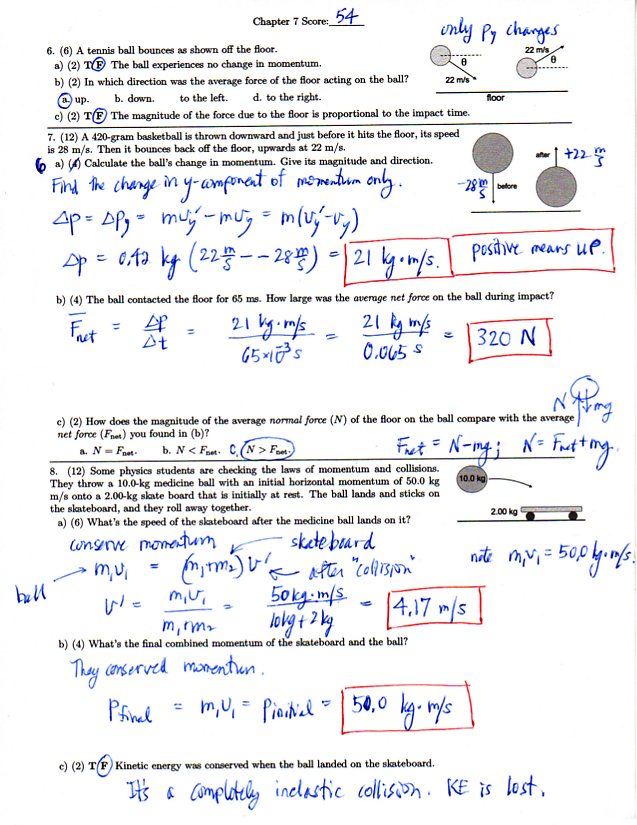 Chapter 7 Score: 54
only Py changes
6. (6) A tennis ball bounces as shown off the floor.
a) (2) T F The ball experiences no change in momentum.
b) (2) In which direction was the average force of the floor acting on the ball?
a. up. b. down. to the left. d. to the right.
c) (2) T F The magnitude of the force due to the floor is proportional to the impact time.
22 m/s
θ
θ
22 m/s
floor
7. (12) A 420-gram basketball is thrown downward and just before it hits the floor, its speed
is 28 m/s. Then it bounces back off the floor, upwards at 22 m/s.
6 a) (4) Calculate the ball's change in momentum. Give its magnitude and direction.
Find the change in y-component of momentum only.
-28 m/s before
after +22 m/s
Δp = Δpy = mvy' - mvy = m(vy' - vy)
Δp = 0.42 kg (22 m/s - - 28 m/s) = 21 kg·m/s. positive means up.
b) (4) The ball contacted the floor for 65 ms. How large was the average net force on the ball during impact?
F̅net = Δp/Δt = 21 kg·m/s / 65×10⁻³ s = 21 kg m/s / 0.065 s = 320 N
N mg
c) (2) How does the magnitude of the average normal force (N) of the floor on the ball compare with the average
net force (Fnet) you found in (b)?
a. N = Fnet. b. N < Fnet. c. N > Fnet.
Fnet = N-mg; N = Fnet + mg.
8. (12) Some physics students are checking the laws of momentum and collisions.
They throw a 10.0-kg medicine ball with an initial horizontal momentum of 50.0 kg
m/s onto a 2.00-kg skate board that is initially at rest. The ball lands and sticks on
the skateboard, and they roll away together.
10.0 kg
2.00 kg
a) (6) What's the speed of the skateboard after the medicine ball lands on it?
conserve momentum skateboard
ball m₁v₁ = (m₁+m₂) v' after "collision"
note m₁v₁ = 50.0 kg·m/s.
v' = m₁v₁ / m₁+m₂ = 50 kg·m/s / 10kg + 2 kg = 4.17 m/s
b) (4) What's the final combined momentum of the skateboard and the ball?
They conserved momentum.
Pfinal = m₁v₁ = Pinitial = 50.0 kg·m/s
c) (2) T F Kinetic energy was conserved when the ball landed on the skateboard.
It's a completely inelastic collision. KE is lost.